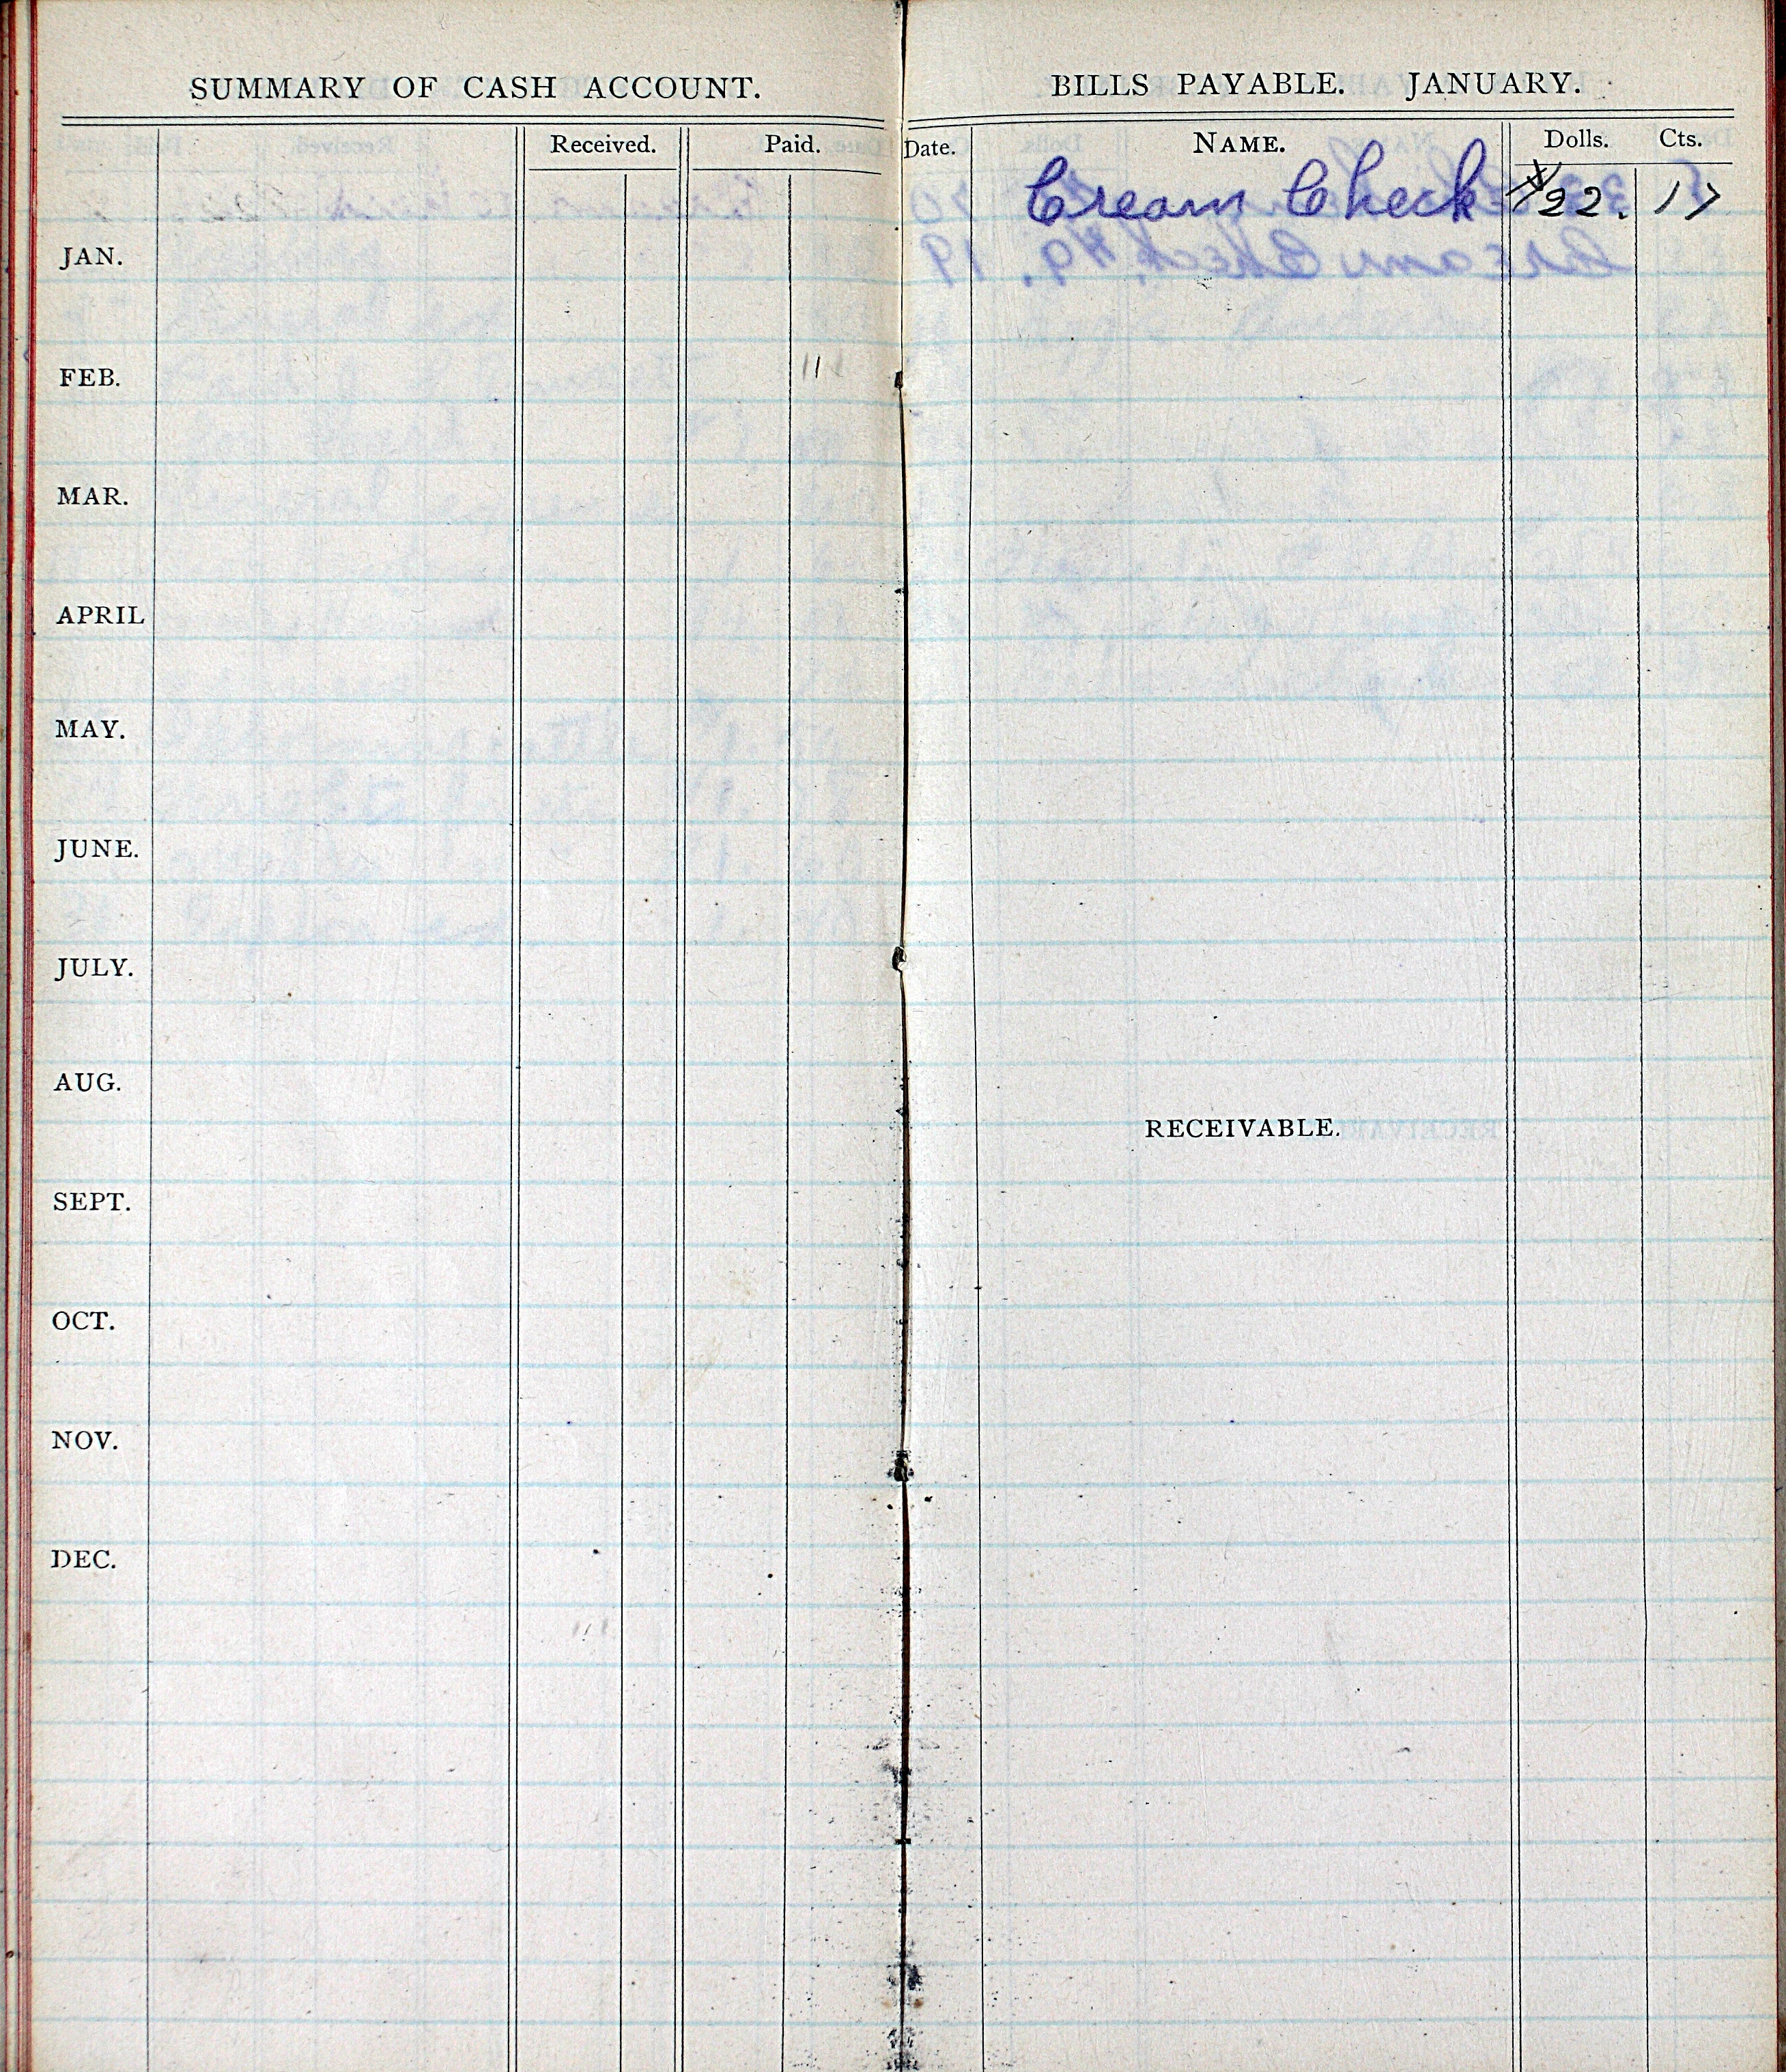 SUMMARY OF CASH ACCOUNT.
Received. Paid.
JAN.
FEB.
MAR.
APRIL
MAY.
JUNE.
JULY.
AUG.
SEPT.
OCT.
NOV.
DEC.
BILLS PAYABLE. JANUARY.
Date. NAME. Dolls. Cts.
Cream Check $22. 17
RECEIVABLE.